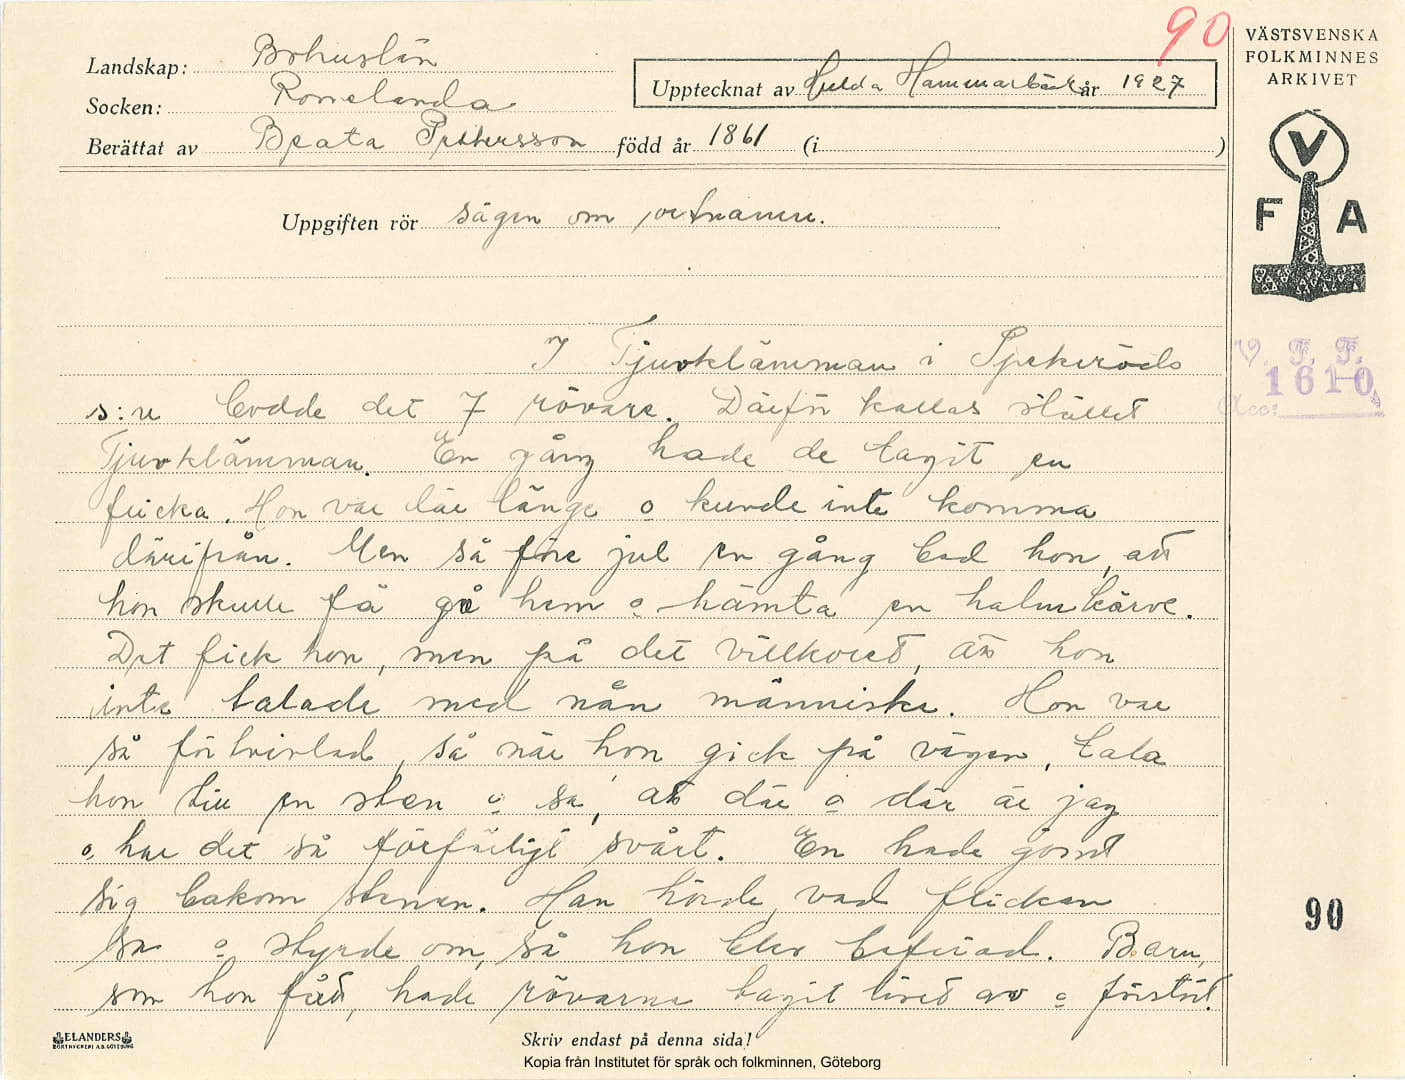 90
VÄSTSVENSKA
FOLKMINNES
ARKIVET
Landskap: Bohuslän
Socken: Romelanda
Upptecknat av Hulda Hammarbäck år 1927
Berättat av Beata Pettersson född år 1861 (i )
Uppgiften rör sägen om ortnamn.
V
F A
I Tjuvklämman i Spekeröds
s:n bodde det 7 rövare. Därför kallas stället
Tjuvklämman. En gång hade de tagit en
flicka. Hon var där länge o kunde inte komma
därifrån. Men så före jul en gång bad hon, att
hon skulle få gå hem o hämta en halmkärve.
Det fick hon, men på det villkoret, att hon
inte talade med nån människa. Hon var
så förtvivlad, så när hon gick på vägen, tala
hon till en sten o sa, att där o där är jag
o, har det så förfärligt svårt. En hade gömt
sig bakom stenen. Han hörde, vad flickan
sa o styrde om, så hon blev befriad. Barn,
som hon fått, hade rövarna tagit livet av o förstört.
V. F. F.
1610
Acc:
90
ELANDERS
BOKTRYCKERI A.B. GÖTEBORG
Skriv endast på denna sida!
Kopia från Institutet för språk och folkminnen, Göteborg